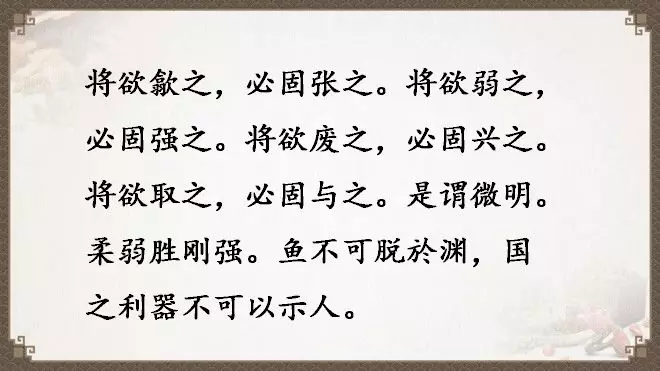 将欲歙之，必固张之。将欲弱之，
必固强之。将欲废之，必固兴之。
将欲取之，必固与之。是谓微明。
柔弱胜刚强。鱼不可脱於渊，国
之利器不可以示人。